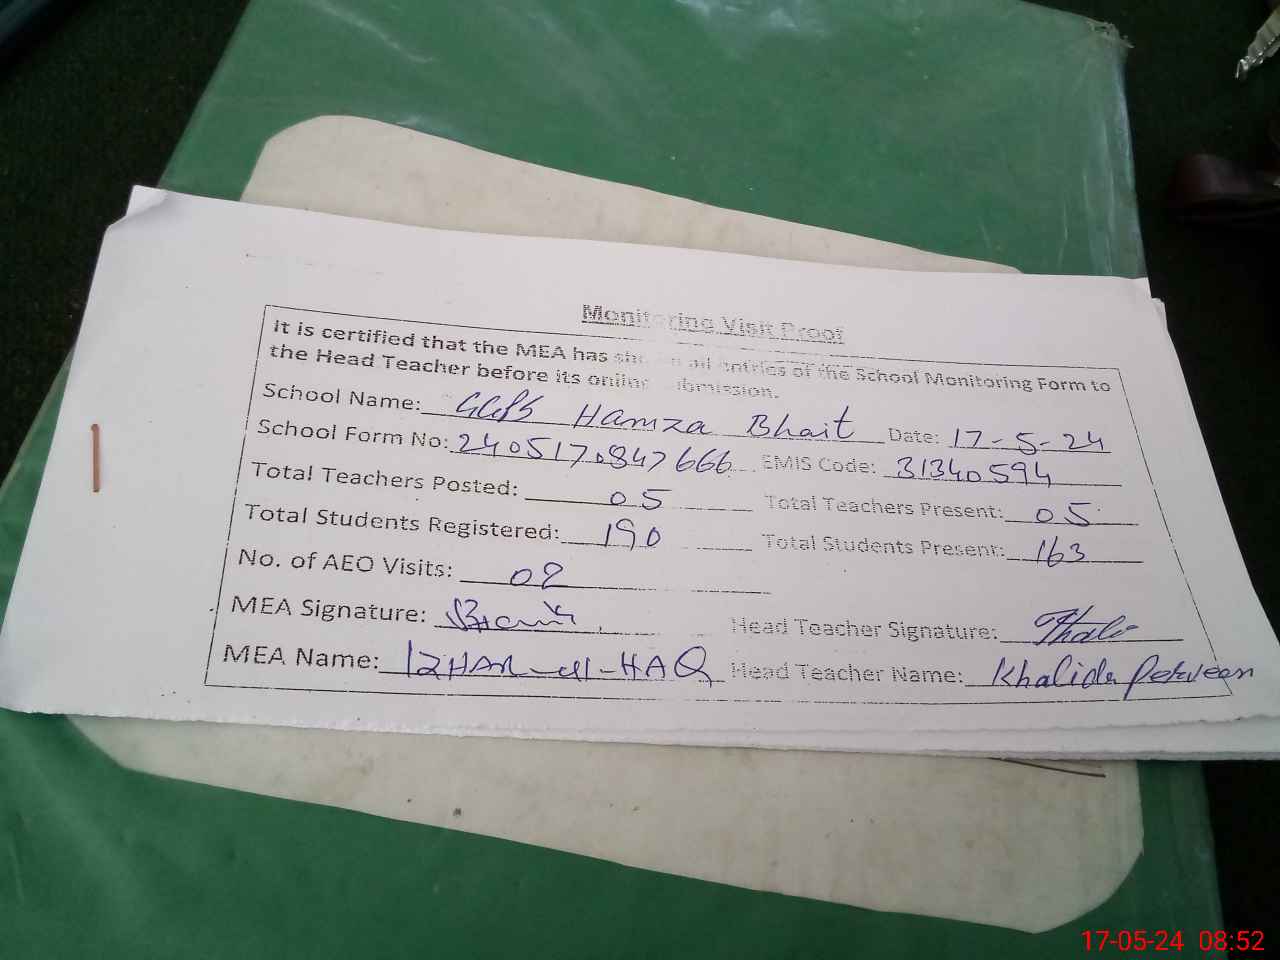 Monitoring Visit Proof
It is certified that the MEA has shown all entries of the School Monitoring Form to
the Head Teacher before its online submission.
School Name: GGPS Hamza Bhait Date: 17-5-24
School Form No: 240517084 7666 EMIS Code: 31340594
Total Teachers Posted: 05 Total Teachers Present: 05
Total Students Registered: 190 Total Students Present: 163
No. of AEO Visits: 02
MEA Signature: Head Teacher Signature:
MEA Name: IZHAR-ul-HAQ Head Teacher Name: Khalida Perveen
17-05-24 08:52